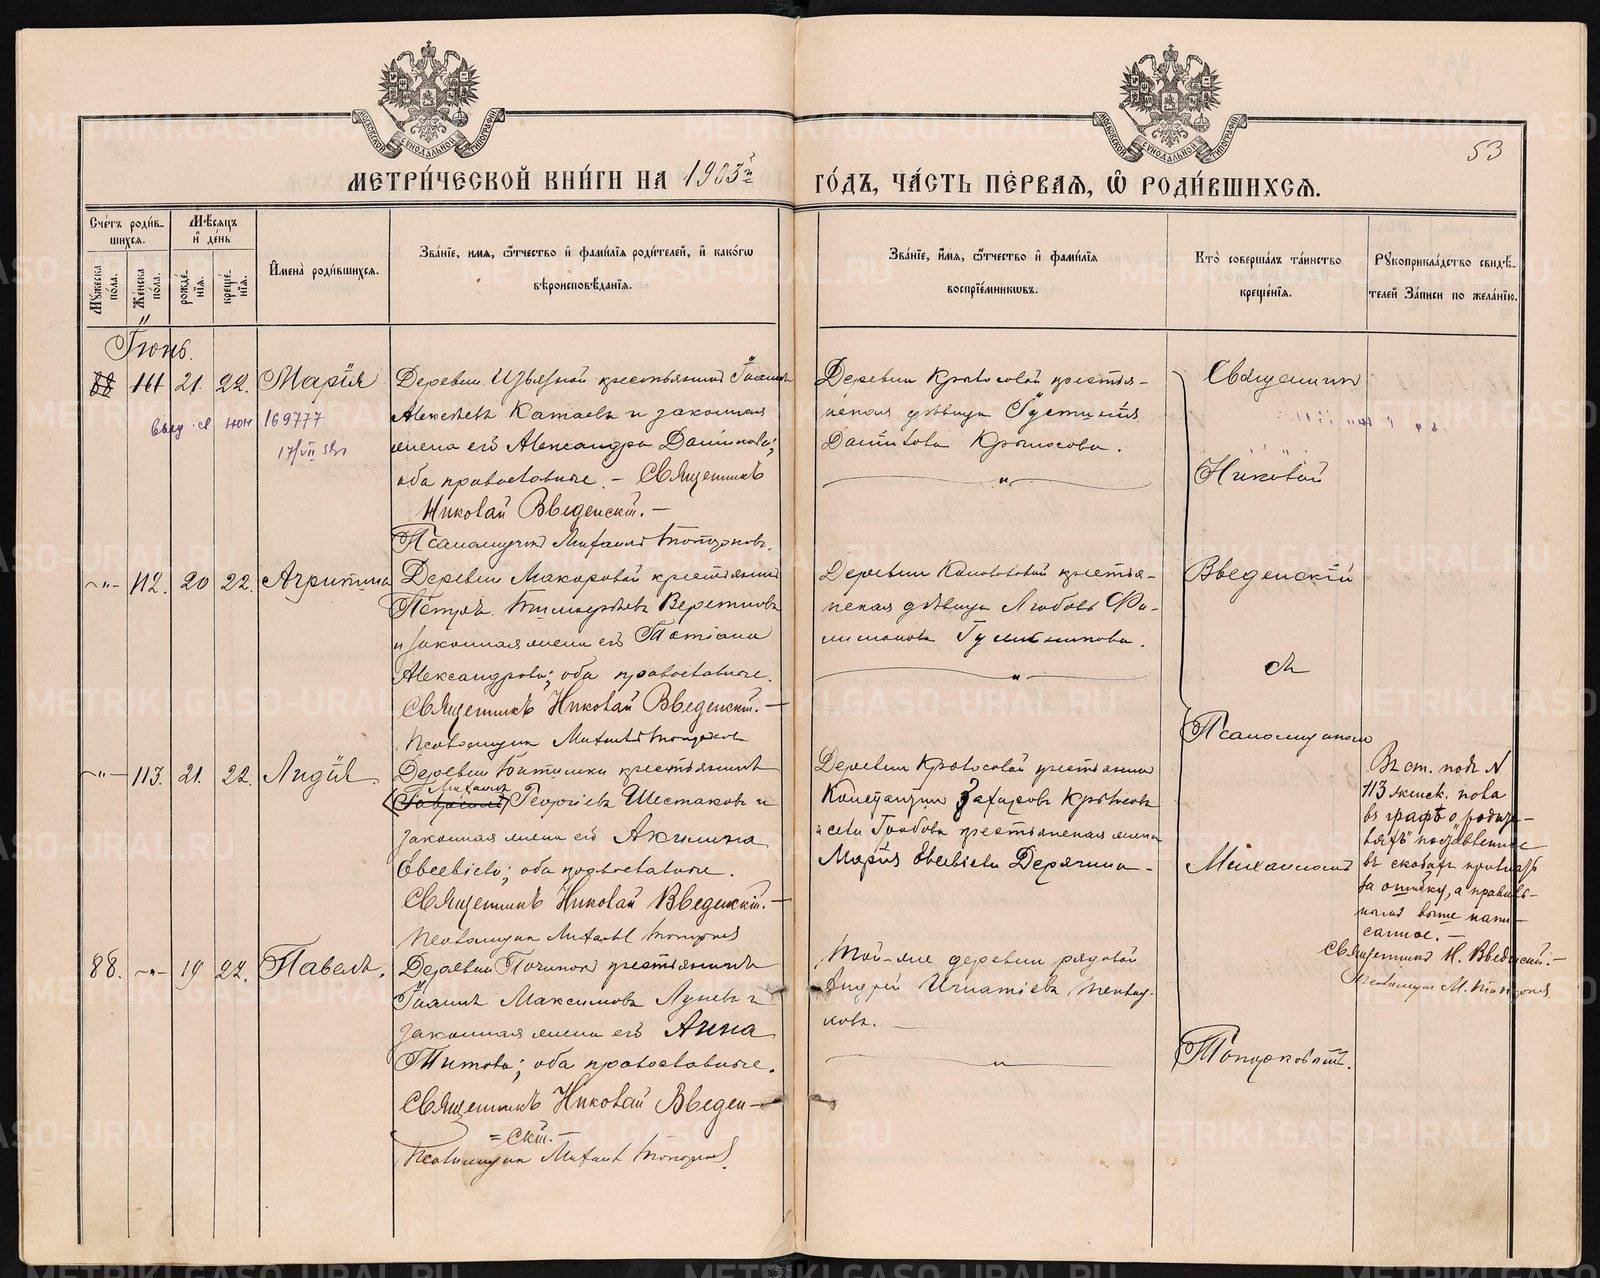 53
МЕТРИ́ЧЕСКОЙ КНИ́ГИ НА 1903й ГО́ДЪ, ЧА́СТЬ ПЕ́РВАЯ, Ѡ РОДИ́ВШИХСЯ.
МОСКОВСКОЙ СѴНОДАЛЬНОЙ ТИПОГРАФІИ
МОСКОВСКОЙ СѴНОДАЛЬНОЙ ТИПОГРАФІИ
Сче́тъ роди́в-
шихся.
Му́жеска по́ла.
Же́нска по́ла.
Мѣ́сяцъ
и҆ де́нь
рожде́-
нія.
креще́-
нія.
И҆мена̀ роди́вшихся.
Зва́ніе, имя, ѻтчество и҆ фами́лія роди́телей, и҆ како́гѡ
вѣроисповѣ́данія.
Зва́ніе, и҆́мя, ѻтчество и҆ фами́лія
воспріе́мникѡвъ.
Кто̀ соверша́лъ та́инство
креще́нія.
Рꙋкоприкла́дство свидѣ́-
телей за́писи по жела́нію.
Іюнь.
111 21. 22. Марія
169777
17/VII
Деревни крестьянинъ Іоаннъ
Алексѣевъ Катаевъ и законная
жена его Александра Данилова;
оба православные. – Священникъ
Николай Введенскій. –
Псаломщикъ Михаилъ Топорковъ.
Деревни крестья-
нская дѣвица Іустинія
Данилова Крылосова.
Священникъ
Николай
Введенскій
съ
Псаломщикомъ
Михаиломъ
Топорковымъ.
–"– 112. 20 22. Агрипина
Деревни Макаровой крестьянинъ
Петръ Веретновъ
и законная жена его Татіана
Александрова; оба православные.
Священникъ Николай Введенскій. –
Псаломщикъ Михаилъ Топорковъ
Деревни крестья-
нская дѣвица Любовь Фи-
лимонова
–"– 113. 21. 22. Лидія
Деревни крестьянинъ
Михаилъ
Георгіевъ Шестаковъ и
законная жена его Акилина
Евсевіева; оба православные.
Священникъ Николай Введенскій. –
Псаломщикъ Михаилъ Топорковъ
Деревни крестьянинъ
Константинъ Захаровъ Крылосовъ
и села крестьянская жена
Марія Евсевіева Дерягина –
Въ ст. подъ №
113 женск. пола
въ графѣ о родите-
ляхъ поставленное
въ скобахъ
за ошибку, а правиль-
нымъ выше напи-
санное. –
Священникъ Н. Введенскій. –
Псаломщикъ М. Топорковъ
88. –"– 19 22. Павелъ.
Деревни Починокъ крестьянинъ
Іоаннъ Максимовъ Луневъ и
законная жена его Анна
Титова; оба православные.
Священникъ Николай Введен–
=скій. –
Псаломщикъ Михаилъ Топорковъ.
Той-же деревни рядовой
Андрей Игнатіевъ
METRIKI.GASO-URAL.RU